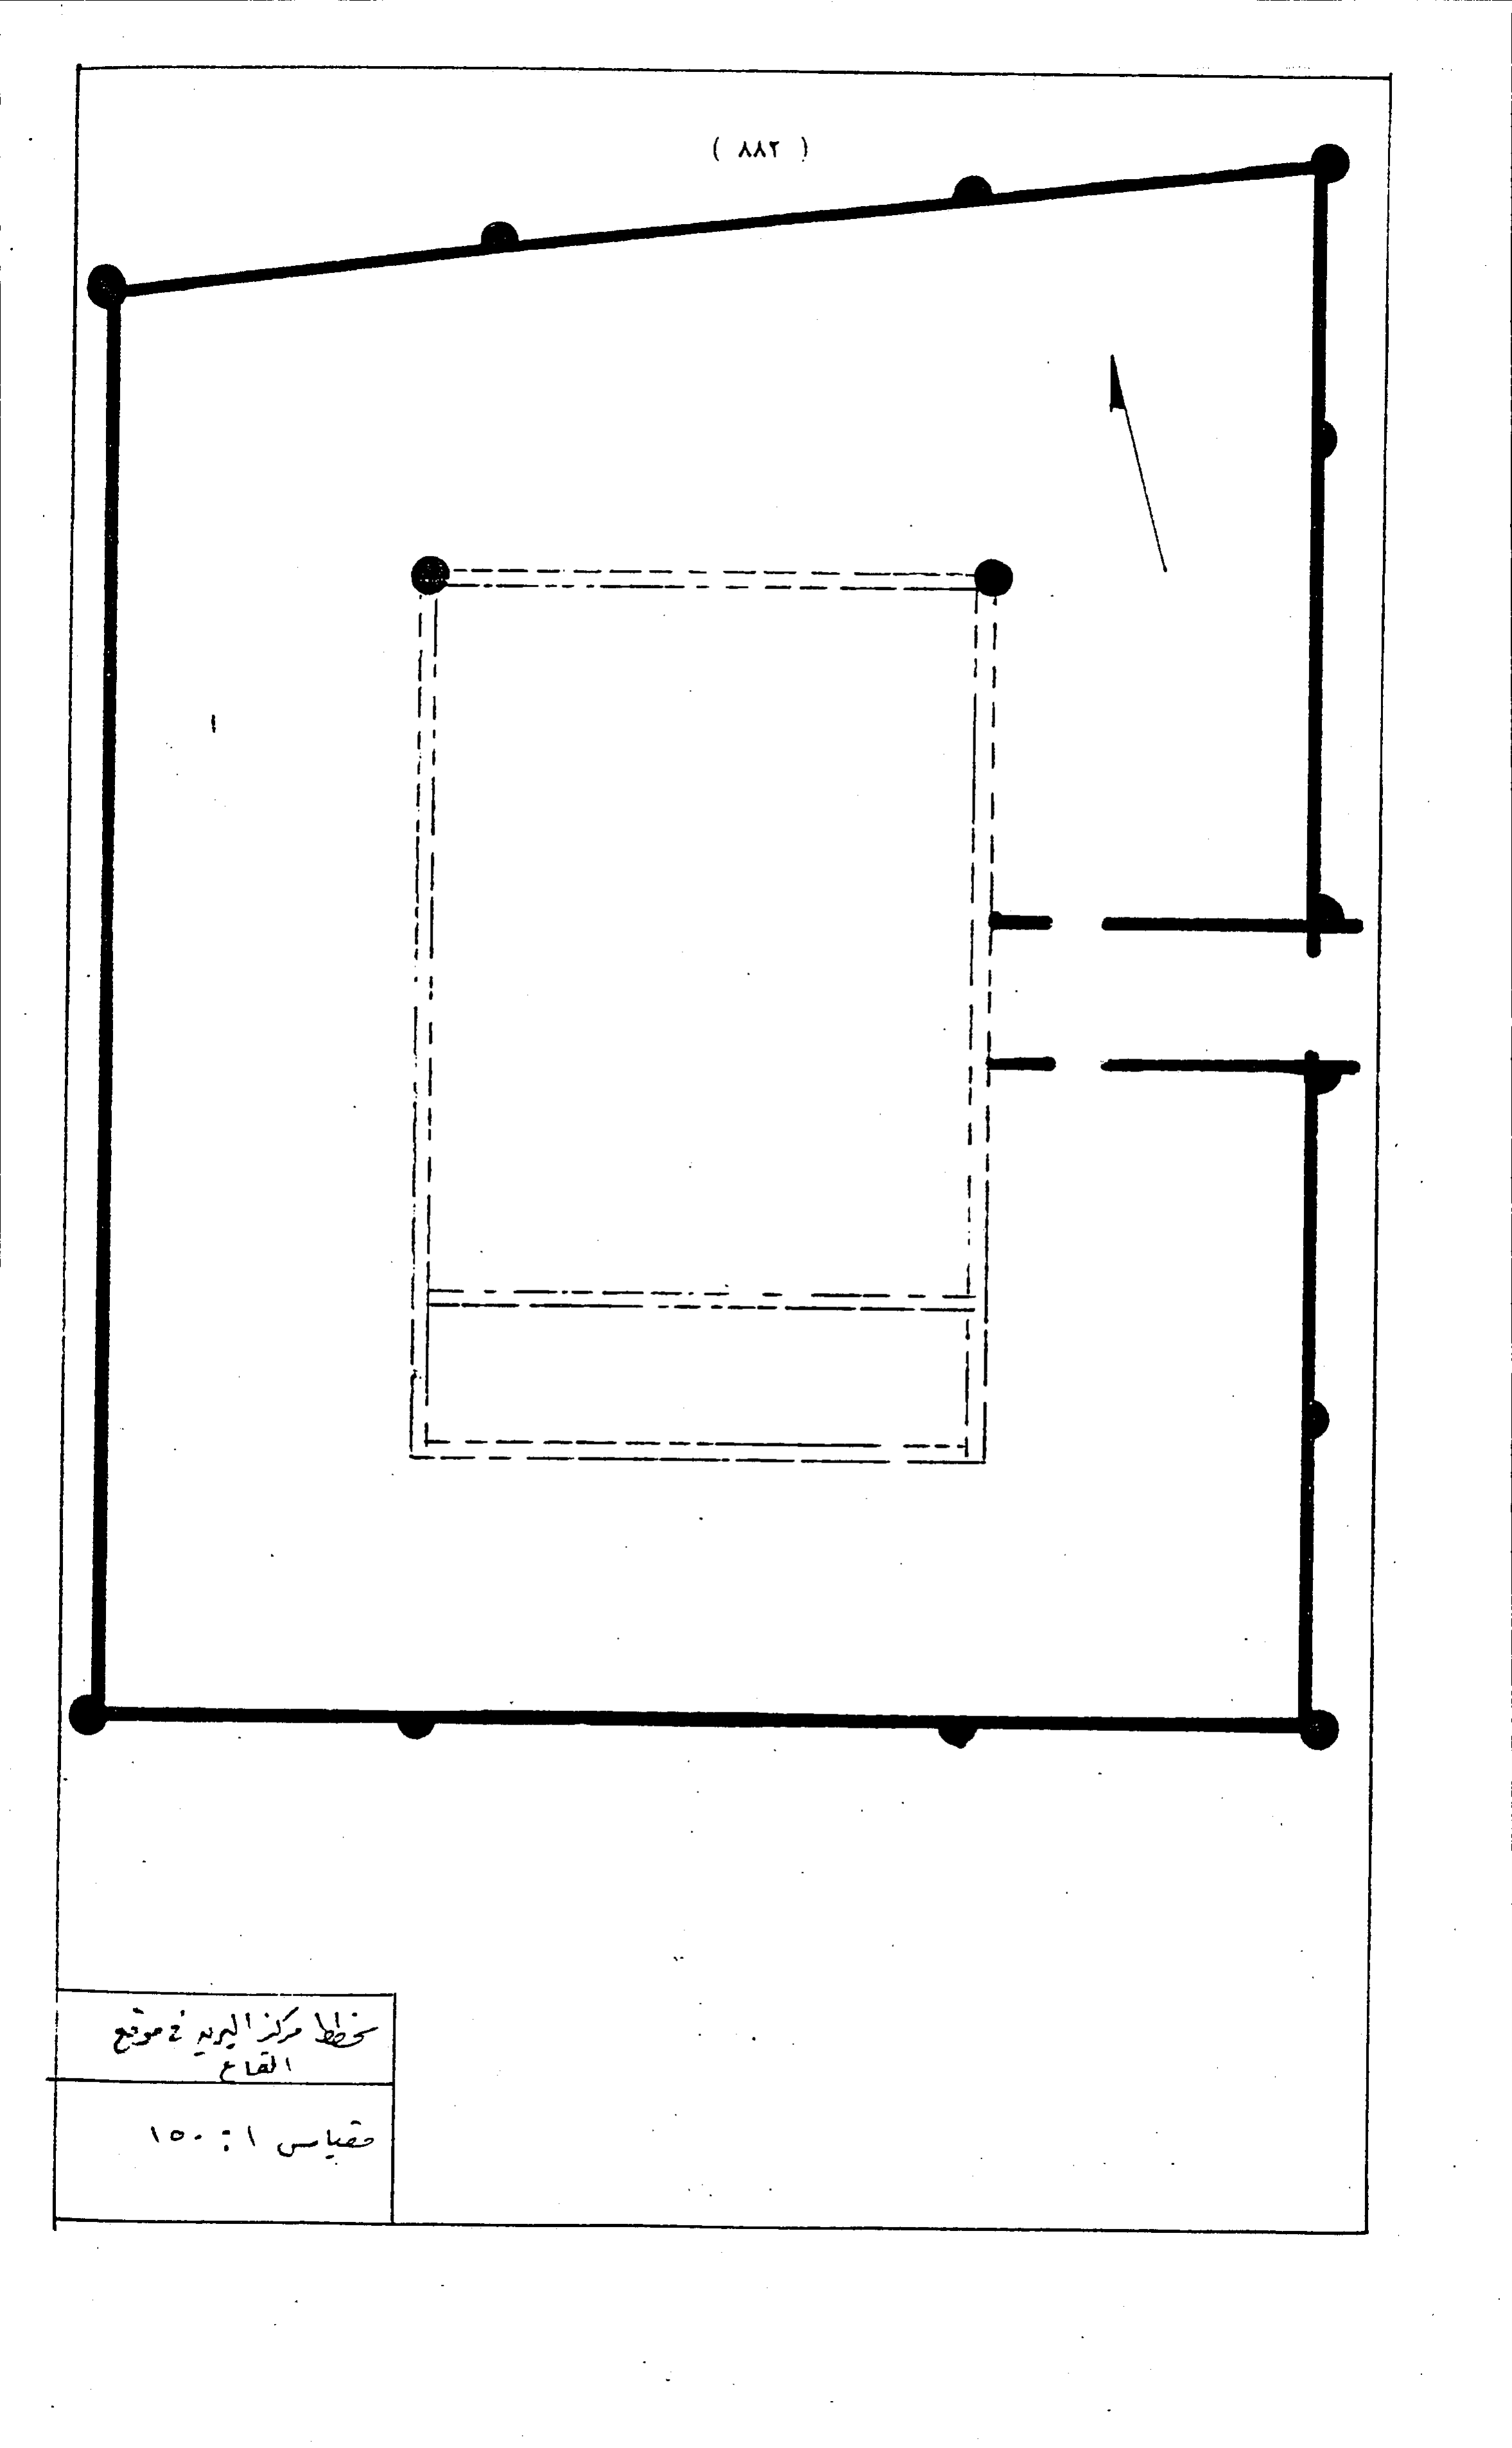 ( ٨٨٢ )
مخطط مركز البريد في موقع
القاع
مقياس ١ : ١٥٠